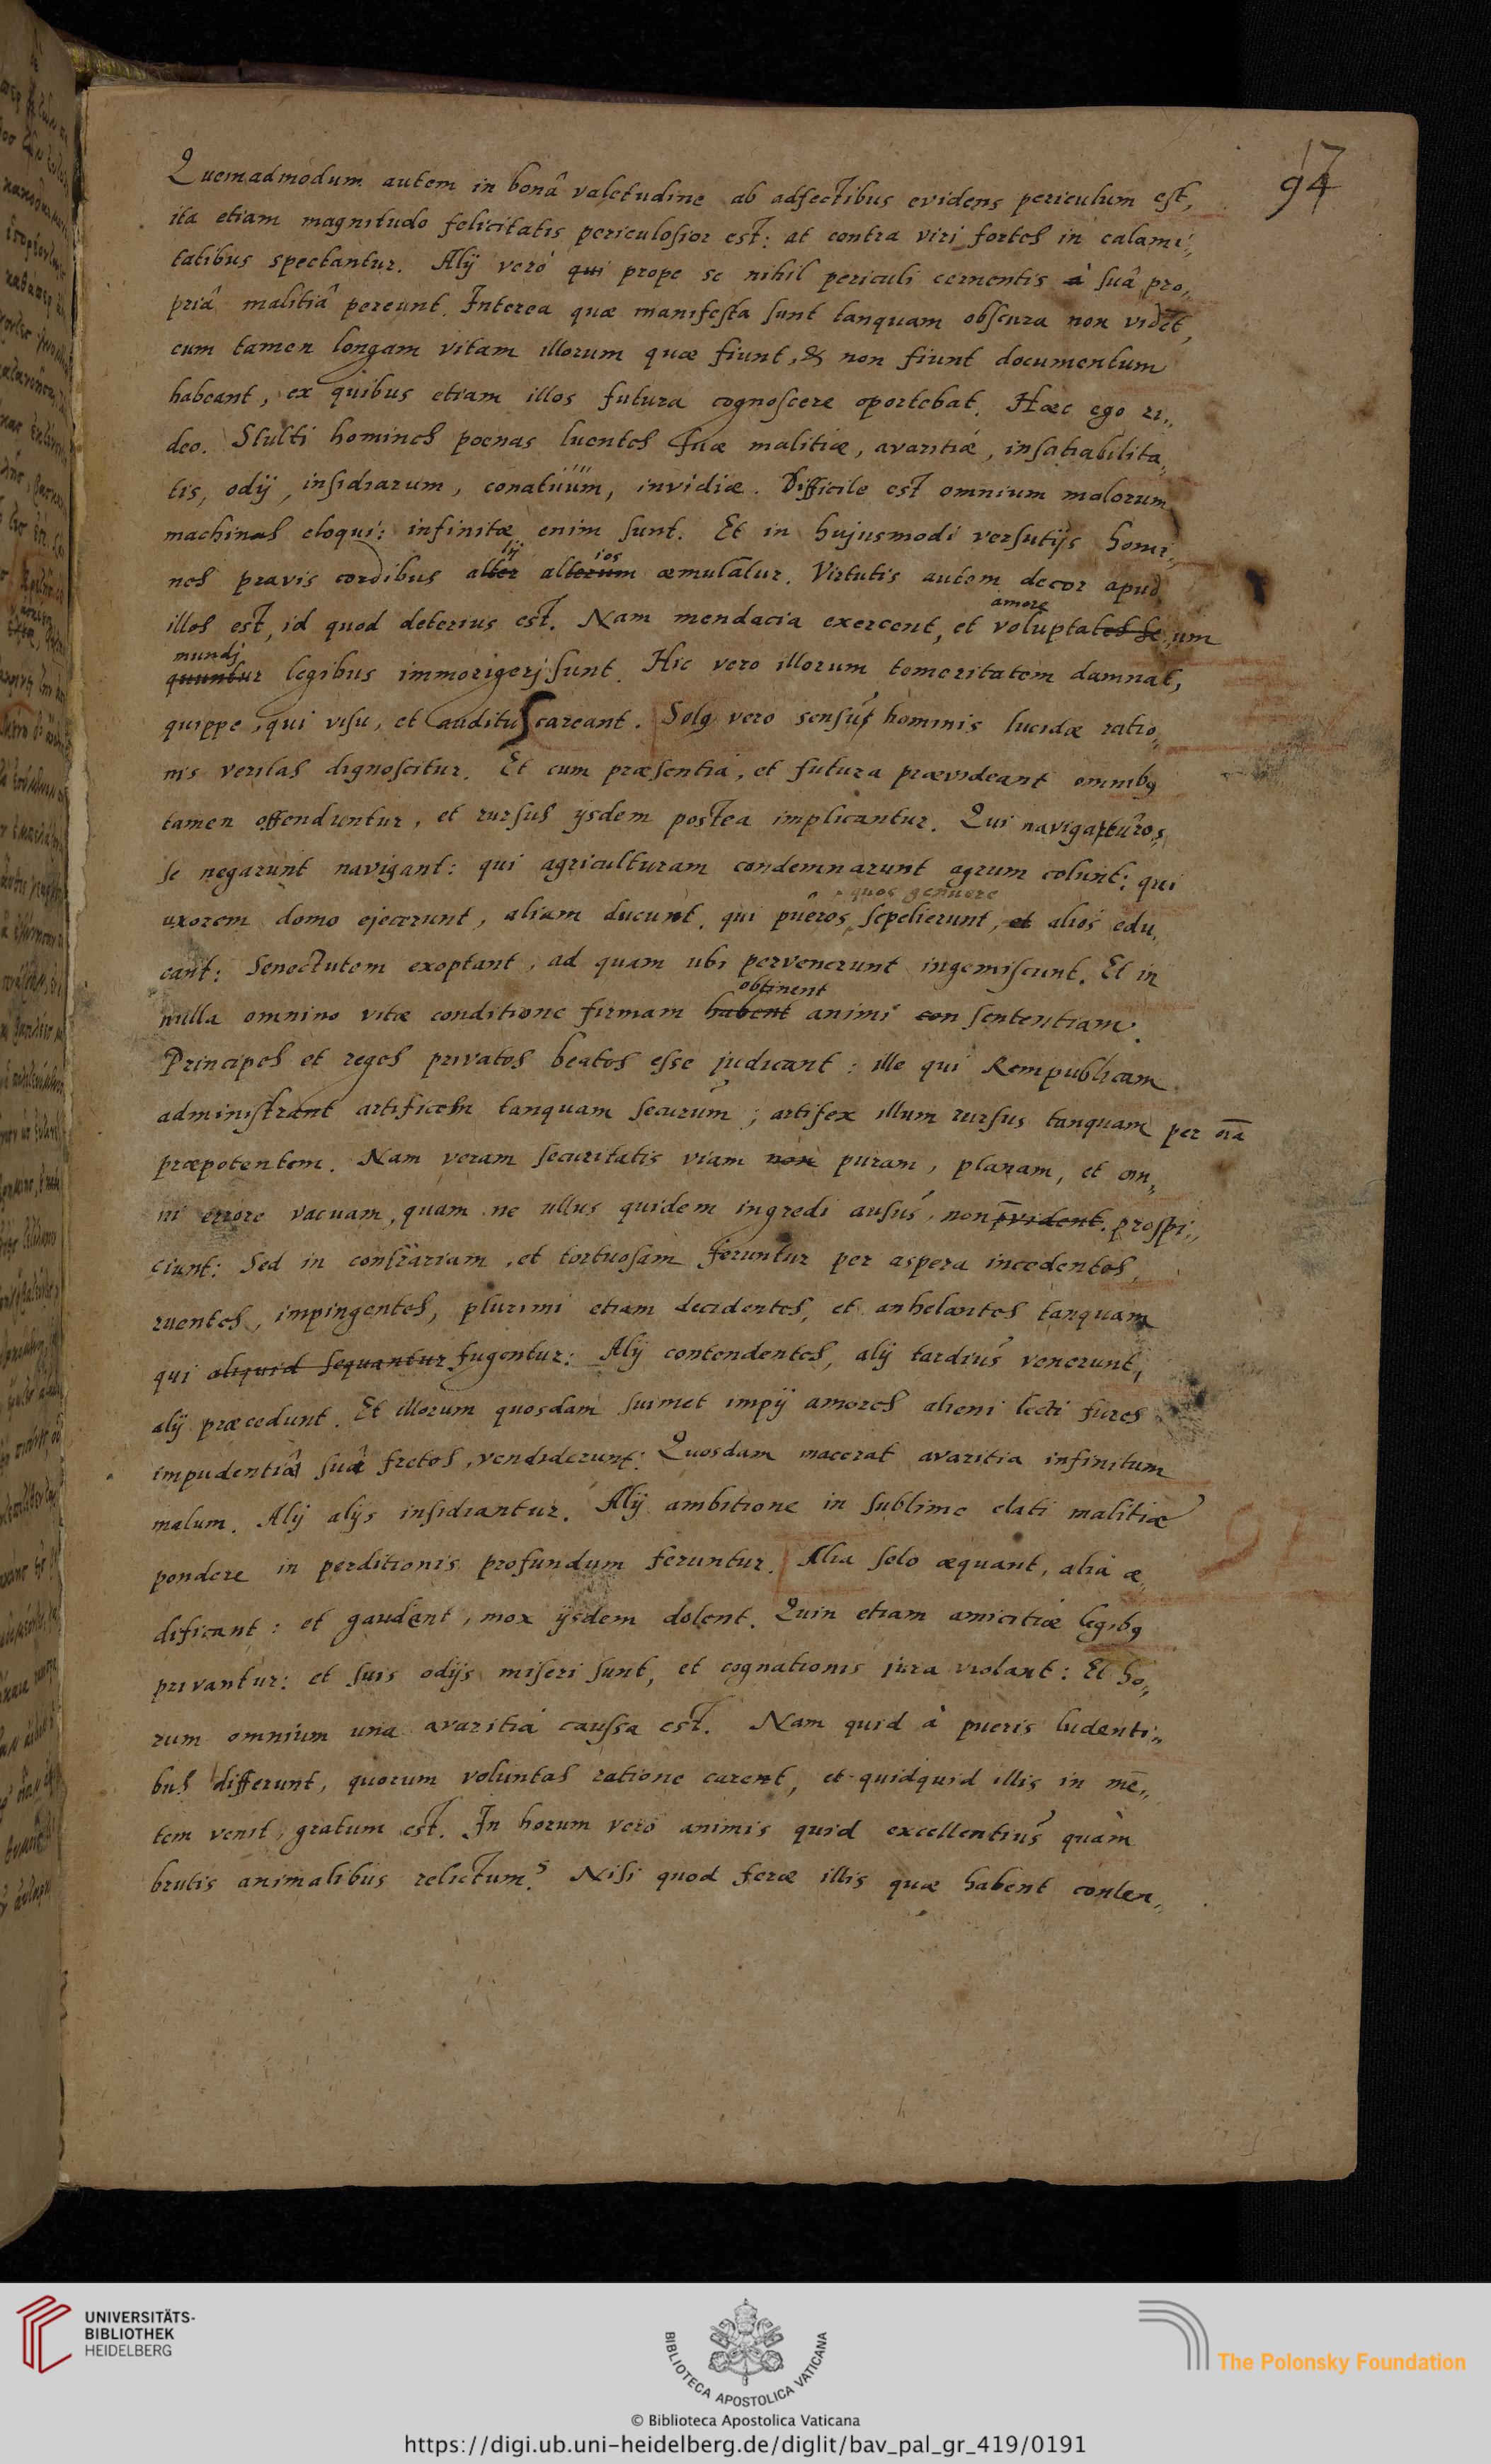 17
94
Quemadmodum autem in bonâ valetudine ab adfectibus evidens periculum est,
ita etiam magnitudo felicitatis periculosior est: at contra viri fortes in calami„
tatibus spectantur. Alij verò qui prope se nihil periculi cernentis à suâ pro„
priâ malitiâ pereunt. Interea quæ manifesta sunt tanquam obscura non videt,
cum tamen longam vitam illorum quæ fiunt, & non fiunt documentum
habeant, ex quibus etiam illos futura cognoscere oportebat. Hæc ego ri„
deo. Stulti homines poenas luentes suæ malitiæ, avaritiæ, insatiabilita„
tis, odij, insidiarum, conatuum, invidiæ. Difficile est omnium malorum
machinas eloqui: infinitæ enim sunt. Et in hujusmodi versutijs homi„
lij ios
nes pravis cordibus alter alterum æmulātur. Virtutis autem decor apud
amore
illos est, id quod deterius est. Nam mendacia exercent, et voluptates se um
mundj
quuntur legibus immorigerj sunt. Hic vero illorum temeritatem damnat,
quippe, qui visu, et auditu careant. Solq vero sensus hominis lucidæ ratio„
nis veritas dignoscitur. Et cum præsentia, et futura prævideant omnibq
tamen offenduntur, et rursus ijsdem postea implicantur. Qui navigaturos
se negarunt navigant: qui agriculturam condemnarunt agrum colunt: qui
quos genuere
uxorem domo ejecerunt, aliam ducunt. qui pueros sepelierunt, et alios edu„
cant: Senectutem exoptant, ad quam ubi pervenerunt ingemiscunt. Et in
obtinent
nulla omnino vitæ conditione firmam habent animi con sententiam.
Principes et reges privatos beatos esse judicant: ille qui Rempublicam
administrant artificem tanquam securum; artifex illum rursus tanquam per oīa
præpotentem. Nam veram securitatis viam non puram, planam, et om„
ni errore vacuam, quam ne ullus quidem ingredi ausus, non p̄vident. prospi„
ciunt: Sed in contrariam, et tortuosam feruntur per aspera incedentes,
ruentes, impingentes, plurimi etiam decidentes, et anhelantes tanquam
qui aliquid sequantur fugentur: Alij contendentes, alij tardius venerunt,
alij præcedunt. Et illorum quosdam suimet impij amores alieni lecti fures
impudentiâ suâ fretos, vendiderunt: Quosdam macerat avaritia infinitum
malum. Alij alijs insidiantur. Alij ambitione in sublime elati malitiæ
95
pondere in perditionis profundum feruntur. Alia solo æquant, alia æ„
dificant: et gaudent, mox ijsdem dolent. Quin etiam amicitiæ legibq
privantur: et suis odijs miseri sunt, et cognationis jura violant: Et ho„
rum omnium una avaritia caussa est. Nam quid à pueris ludenti„
bus differunt, quorum voluntas ratione carent, et quidquid illis in mē„
tem venit, gratum est. In horum verò animis quid excellentius quàm
brutis animalibus relictum? Nisi quod feræ illis quæ habent conten„
UNIVERSITÄTS-
BIBLIOTHEK
HEIDELBERG
BIBLIOTECA APOSTOLICA VATICANA
The Polonsky Foundation
© Biblioteca Apostolica Vaticana
https://digi.ub.uni-heidelberg.de/diglit/bav_pal_gr_419/0191